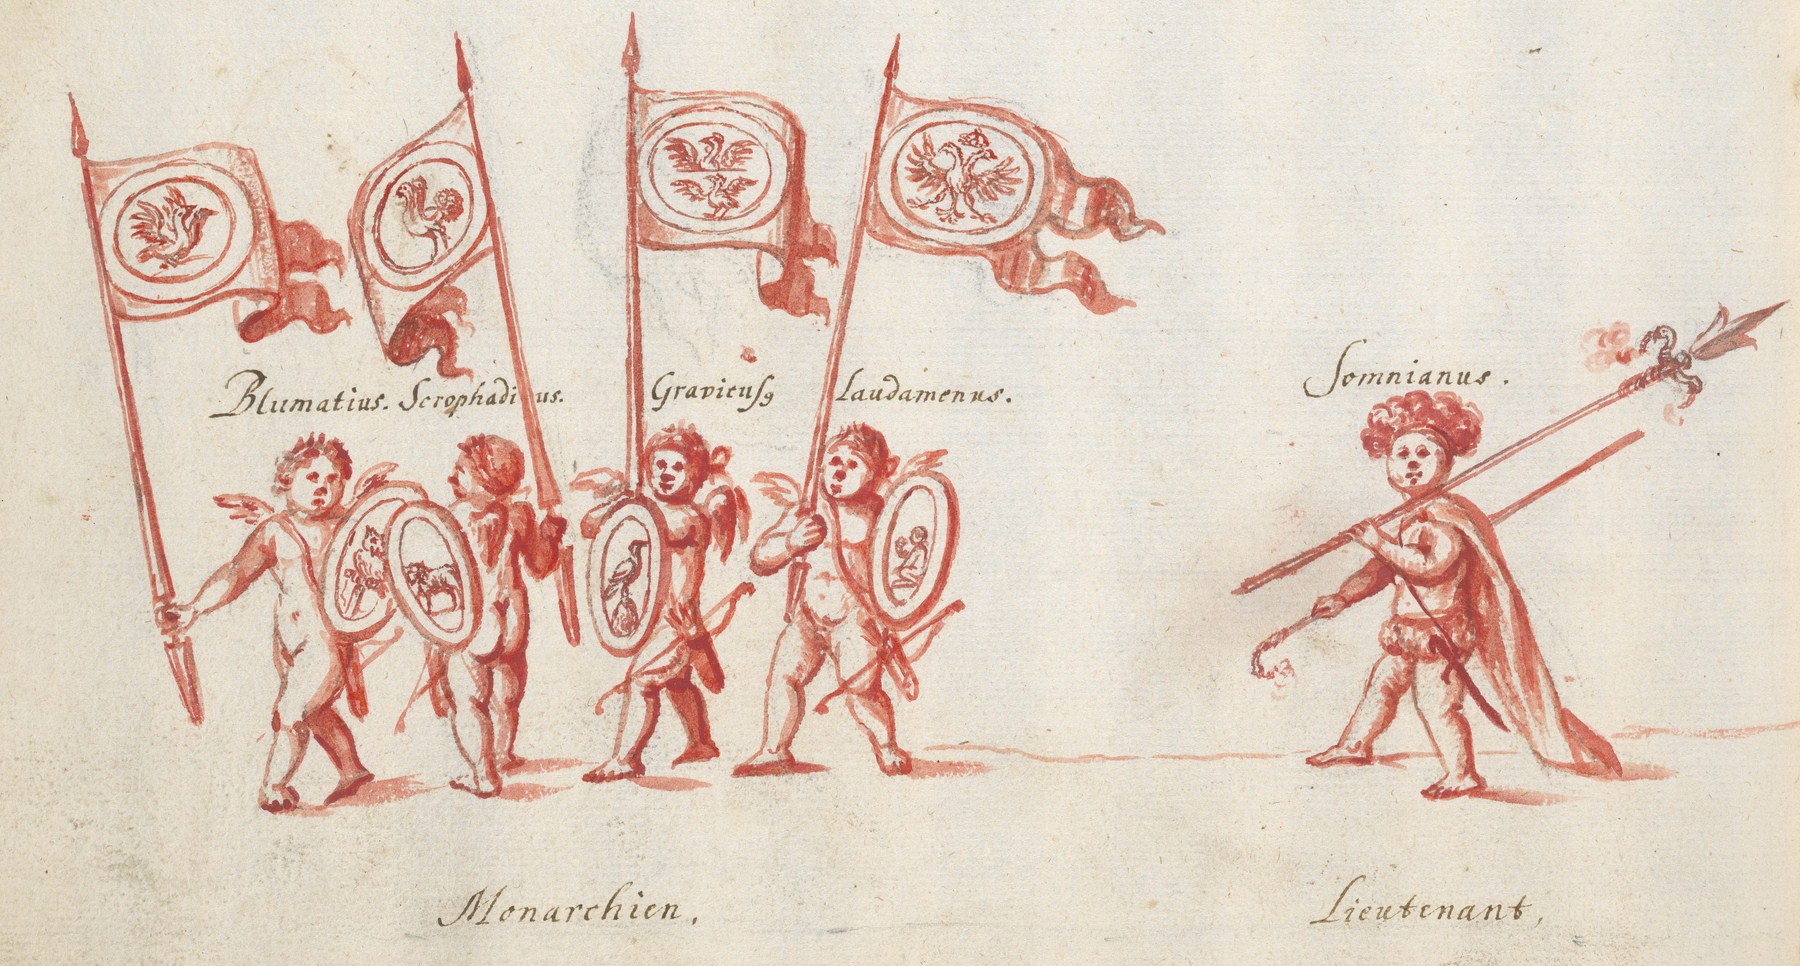 Blumatius. Scrophadicus. Gravicus9 Laudamenus.
Somnianus.
Monarchien.
Lieutenant,